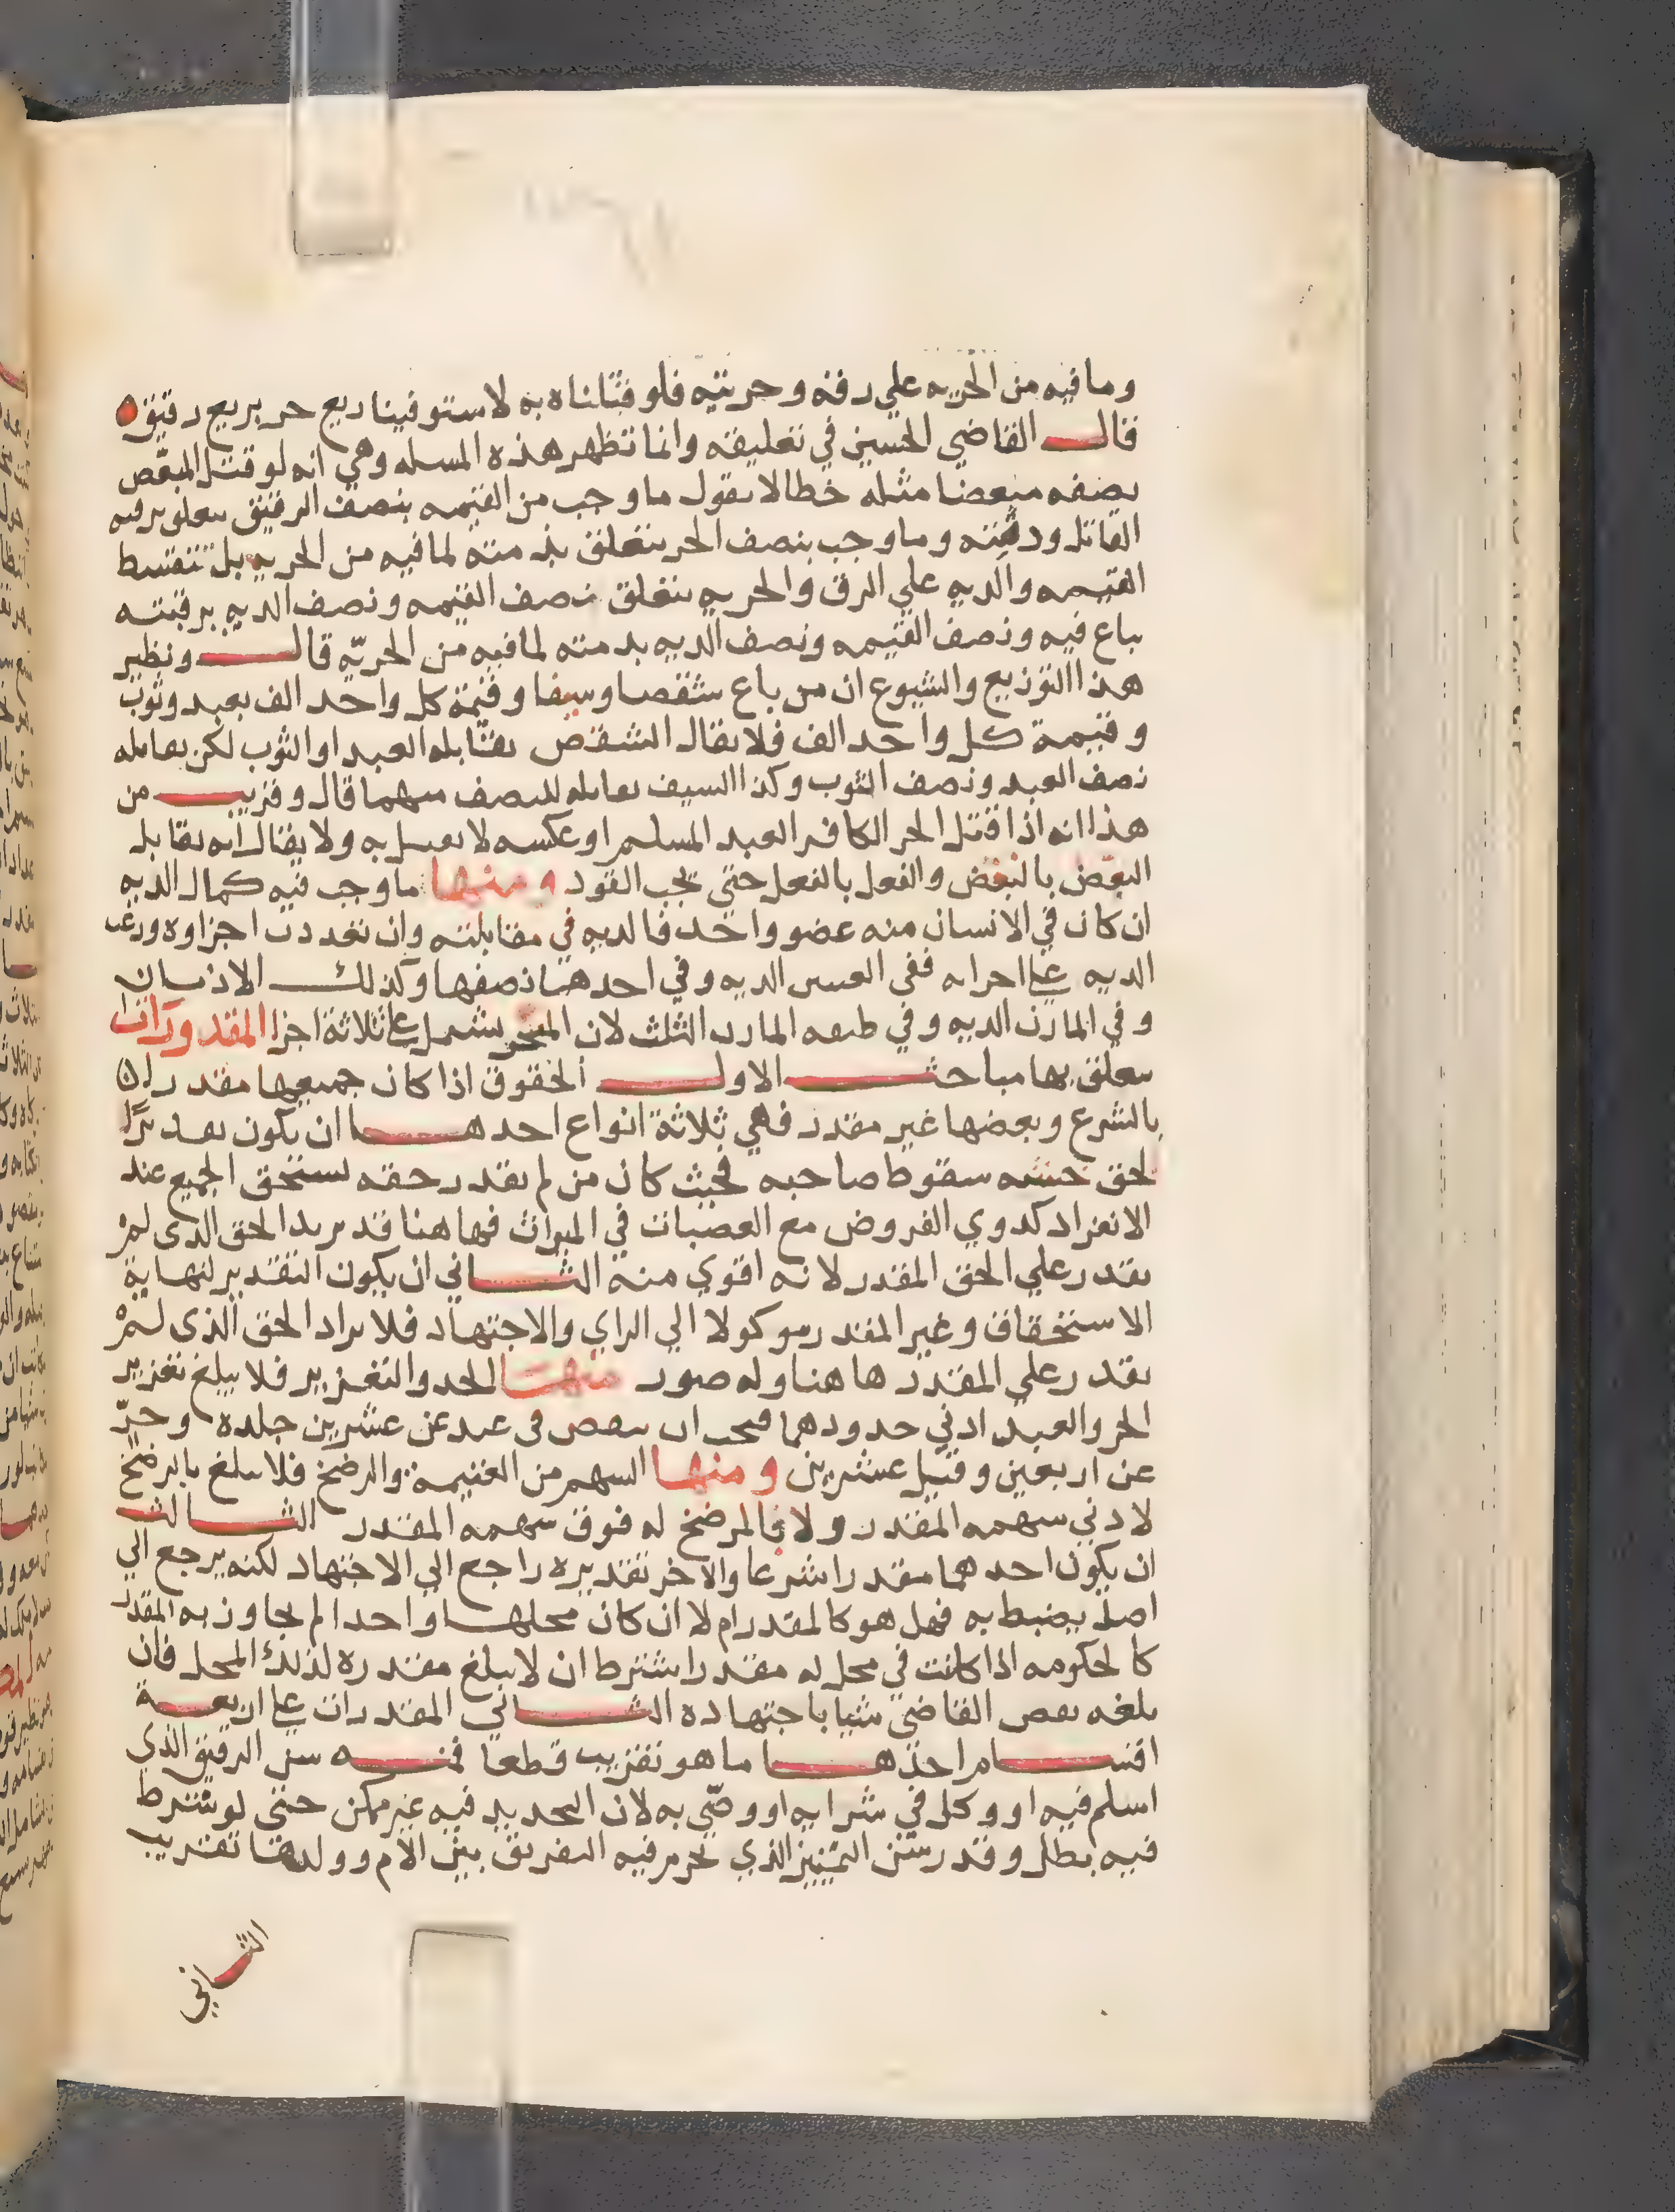 وما فيه من الحريه علي رقه وحريته فلو قتلناه به لاستوفينا ربع حر بربع رقيق ه
قال القاضي الحسين في تعليقه وانما تظهر هذه المسله وهي انه لو قتل المبعّض
نصفه مبعضا مثله خطا لا نقول ما وجب من القيمه بنصف الرقيق يتعلق برقبه
القاتل ورقبته وما وجب بنصف الحر يتعلق بذمته لما فيه من الحريه بل تتقسط
القيمه والديه علي الرق والحريه يتعلق نصف القيمه ونصف الديه برقبته
يباع فيه ونصف القيمه ونصف الديه بذمته لما فيه من الحريّه قال ونظير
هذا التوزيع والشيوع ان من باع شقصا وسيفا وقيمة كل واحد الف بعبد وثوب
وقيمة كل واحد الف فلا يقال الشقص يقابله العبد او الثوب لكن يقابله
نصف العبد ونصف الثوب وكذا السيف يقابله النصف منهما قال وقريب من
هذا انه اذا قتل الحر الكافر العبد المسلم او عكسه لا يقتل به ولا يقال انه يقابل
البعض بالبعض والفعل بالفعل حتي يجب القود ومنها ما وجب فيه كمال الديه
ان كان في الانسان منه عضو واحد فالديه في مقابلته وان تعددت اجزاوه وزعت
الديه علي اجزايه ففي العينين الديه وفي احدهما نصفها وكذلك الاذنان
وفي المارن الديه وفي طبقه المارن الثلث لان المنخر يشتمل علي ثلاثة اجزا المقدورات
يتعلق بها مباحث الاول الحقوق اذا كان جميعها مقدران
بالشرع وبعضها غير مقدر فهي ثلاثة انواع احدها ان يكون تقديرًا
لحق خشيه سقوط صاحبه فحيث كان من لم يقدر حقه يستحق الجميع عند
الانفراد كذوي الفروض مع العصبات في الميراث فهاهنا قد يزيد الحق الذى لم
يقدر علي الحق المقدر لانه اقوي منه الثاني ان يكون التقدير لنهاية
الاستحقاق وغير المقدر موكولا الي الراي والاجتهاد فلا يزاد الحق الذى لم
يقدر علي المقدر هاهنا وله صور منها الحد والتعزير فلا يبلغ تعزير
الحر والعبد ادني حدودهما فيجب ان ينقص في عبد عن عشرين جلده وحرّ
عن اربعين وقيل عشرين ومنها السهم من الغنيمة والرضخ فلا يبلغ بالرضخ
لادني سهمه المقدر ولا بالمرضخ له فوق سهمه المقدر الثالث
ان يكون احدهما مقدرا شرعا والاخر تقديره راجع الي الاجتهاد لكنه يرجع الي
اصل يضبط به فهل هو كالمقدر ام لا ان كان محلها واحدا لم يجاوز به المقدر
كالحكومه اذا كانت في محل له مقدر اشترط ان لا يبلغ مقدره لذلك المحل فان
بلغه نقص القاضي شيا باجتهاده الثاني المقدرات علي اربعة
اقسام احدها ما هو تقريب قطعا فمنه سن الرقيق الذي
اسلم فيه او وكل في شرايه او وصّي به لان التحديد فيه غير ممكن حتي لو شرط
فيه بطل وقدر سن التمييز الذي يحرم فيه التفريق بين الام وولدها تقريب
الثاني